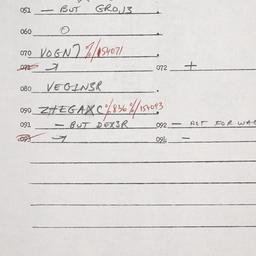 051 — BUT GRO,13
060 O
070 VOGN7 %/154071
072 +
080 VEGINSR
090 ZHEGAXC %836%/154093
091 — BUT DEX3R 092 — ACT FOR WAR
096 —